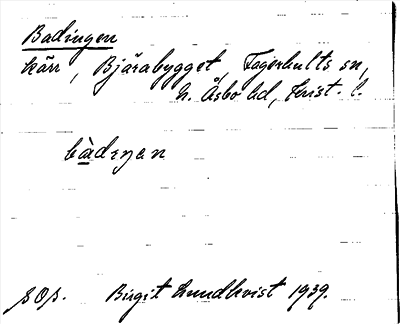 Badingen
kärr, Bjärabygget, Fagerhults sn,
N. Åsbo hd, Krist. l.
bàdıŋən
sOs. Birgit Lundkvist 1939.